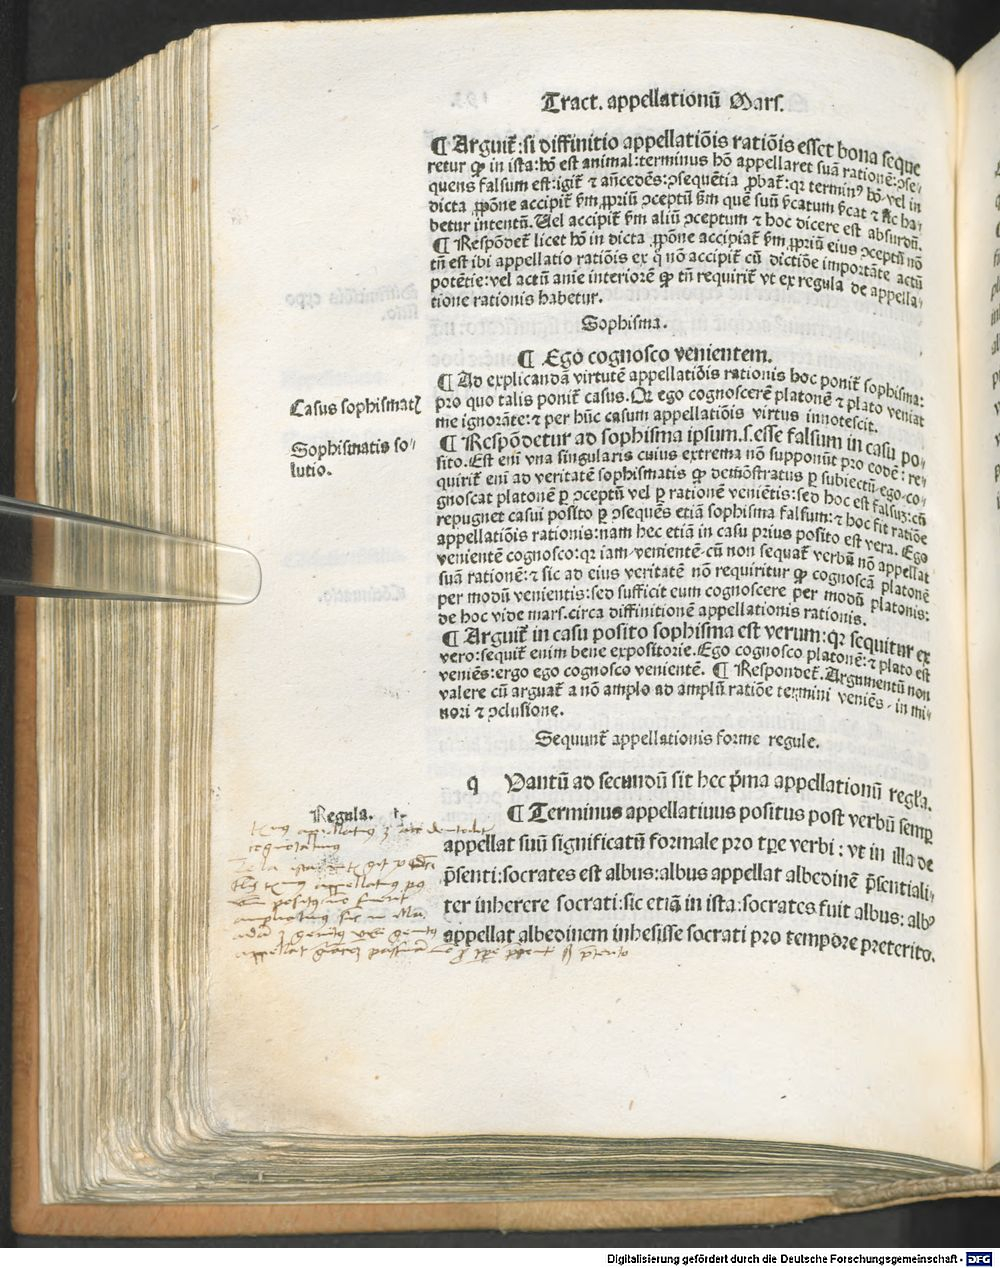 Tract. appellationū Mars.
¶ Arguit̃: si diffinitio appellatiōis ratiōis esset bona seque
retur ꝙ in ista: hō est animal: terminus hō appellaret suā rationē: ꝯse⸗
quens falsum est: igit̃ ⁊ añcedēs: ꝯsequētia ꝓbat̃: qꝛ terminꝰ hō vel in
dicta ꝓpōne accipit̃ ẜm ꝓpriū ꝯceptū ẜm quē suū ẜcatum ẜcat ⁊ sic ha⸗
betur intentū. Uel accipit̃ ẜm aliū ꝯceptum ⁊ hoc dicere est absurdū.
¶ Respōdet̃ licet hō in dicta ꝓpōne accipiat̃ ẜm ꝓpriū eius ꝯceptū nō
tñ est ibi appellatio ratiōis ex q̃ nō accipit̃ cū dictiōe importāte actū
potētie: vel actū anīe interiorē ꝙ tñ requirit̃ vt ex regula de appella⸗
tione rationis habetur.
Sophisma.
¶ Ego cognosco venientem.
¶ Ad explicandā virtutē appellatiōis rationis hoc ponit̃ sophisma:
pro quo talis ponit̃ casus. Qꝛ ego cognoscerē platonē ⁊ plato veniat
me ignorāte: ⁊ per hūc casum appellatiōis virtus innotescit.
Casus sophismatꝭ
¶ Respōdetur ad sophisma ipsum .s. esse falsum in casu po⸗
sito. Est eni vna singularis cuius extrema nō supponūt pro eodē: re⸗
Sophismatis so⸗
lutio.
quirit̃ eni ad veritatē sophismatis ꝙ demōstratus ꝑ subiectū ego co⸗
gnoscat platonē ꝑ ꝯceptū vel ꝑ rationē veniētis: sed hoc est falsuꝫ: cū
repugnet casui posito ꝑ ꝯsequēs etiā sophisma falsum: ⁊ hoc fit ratiōe
appellatiōis rationis: nam hec etiā in casu prius posito est vera. Ego
venientē cognosco: qꝛ iam venientē cū non sequat̃ verbū nō appellat
suā rationē: ⁊ sic ad eius veritatē nō requiritur ꝙ cognoscā platonē
per modū venientis: sed sufficit eum cognoscere per modū platonis:
de hoc vide mars. circa diffinitionē appellationis rationis.
¶ Arguit̃ in casu posito sophisma est verum: qꝛ sequitur ex
vero: sequit̃ enim bene expositorie. Ego cognosco platonē: ⁊ plato est
veniēs: ergo ego cognosco venientē. ¶ Respondet̃. Argumentū non
valere cū arguat̃ a nō amplo ad amplū ratiōe termini veniēs, in mi⸗
nori ⁊ ꝯclusione.
Sequunt̃ appellationis forme regule.
q Vantū ad secundū sit hec p̄ma appellationū regl̃a.
Regula. 1.
¶ Terminus appellatiuus positus post verbū semꝑ
appellat suū significatū formale pro tp̄e verbi: vt in illa de
p̄senti: socrates est albus: albus appellat albedinē p̄sentiali⸗
ter inherere socrati: sic etiā in ista: socrates fuit albus: albꝰ
appellat albedinem inhesisse socrati pro tempore preterito.
Digitalisierung gefördert durch die Deutsche Forschungsgemeinschaft - DFG